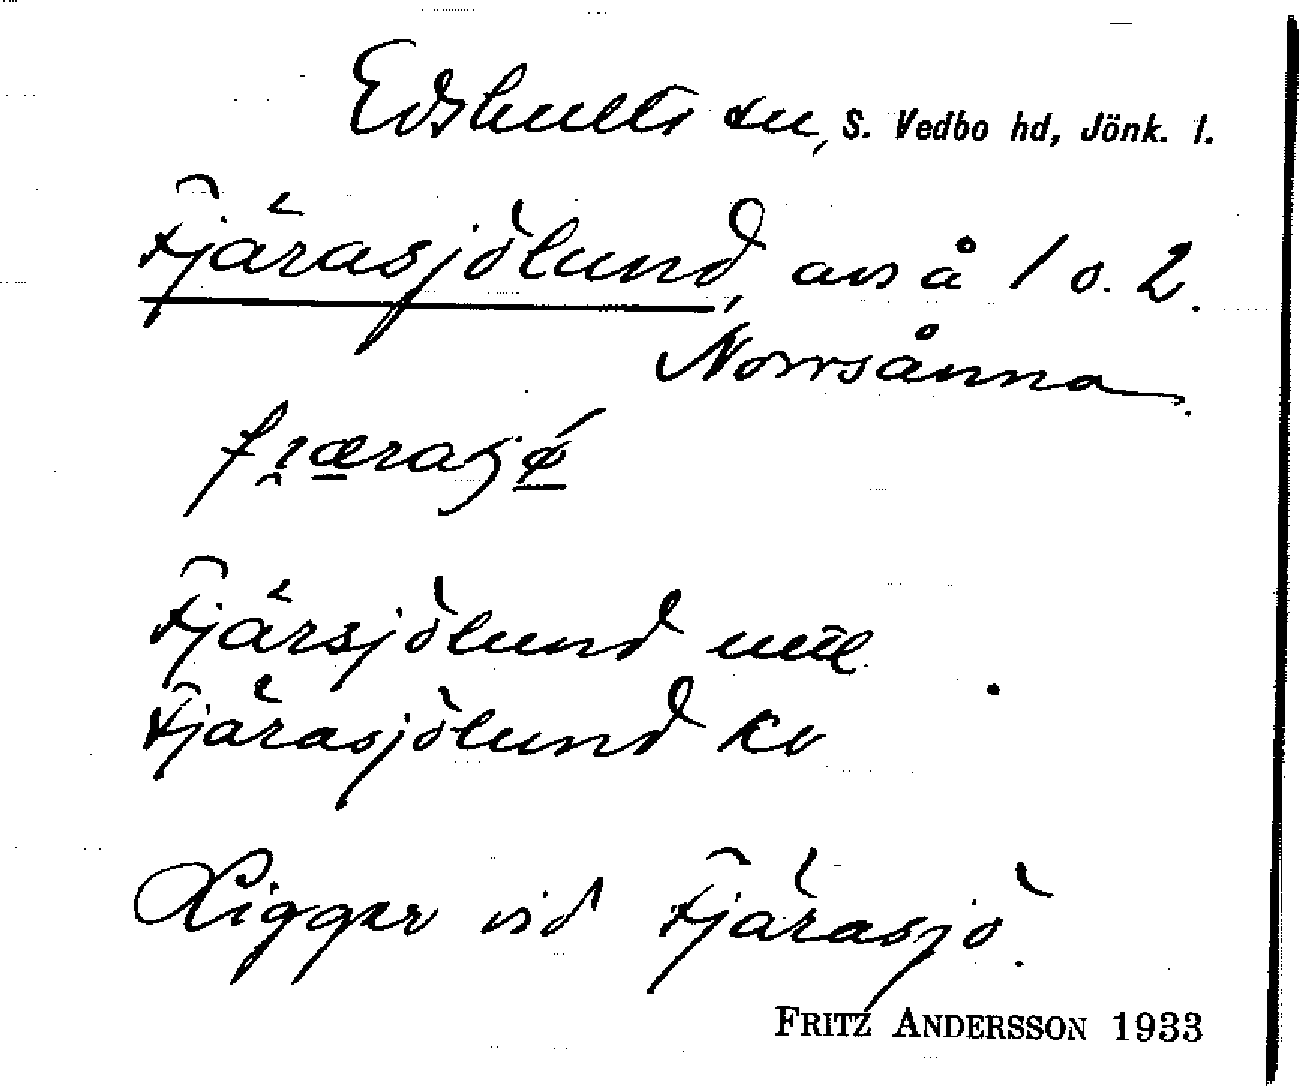 Edshults sn, S. Vedbo hd, Jönk. l.
Fjärasjölund, avs å 1 o. 2.
Norrsånna
Fjärsjölund
Fjärasjölund kv
Ligger vid Fjärasjö.
FRITZ ANDERSSON 1933